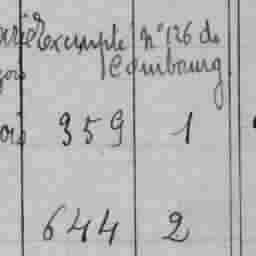 exemple n° 126 de
Combourg
359 1
644 2